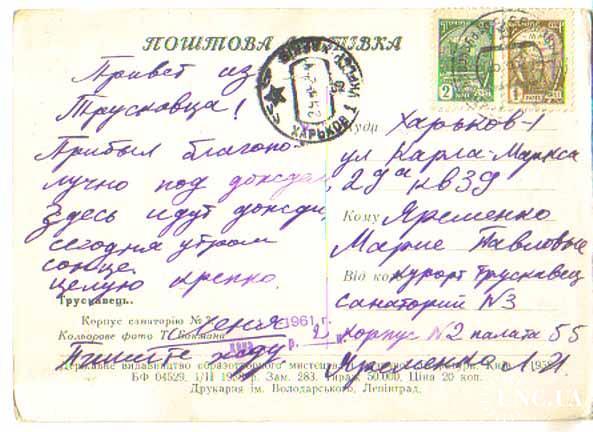 ПОШТОВА ЛИСТІВКА
Привет из
Трускавца!
Прибыл благопо-
лучно под дождем,
здесь идут дожди,
сегодня утром
солнце.
целую крепко.
Пишите жду
2
1
ХАРЬКОВ
Куди Харьков-1
ул Карла-Маркса
29а кв 39
Кому Яременко
Марие Павловне
Від кого курорт Трускавец
санаторий N3
корпус N2 палата 55
Яременко Л.И.
Трускавець.
Корпус санаторію №
Кольорове фото
1961 г.
Державне видавництво образотворчого мистецтва
БФ 04529. 1/ІІ 1958 р. Зам. 283. Тираж 50.000. Ціна 20 коп.
Друкарня ім. Володарського, Ленінград.
UNC.UA